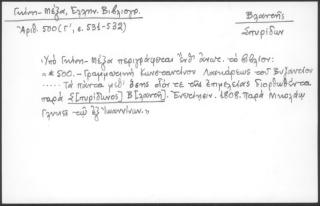 Γκίνη - Μέξα, Ἑλλην. Βιβλιογρ.
Ἀριθ. 500 (Γ', σ. 531-532)
Βλαντῆς
Σπυρίδων
Ὑπὸ Γκίνη - Μέξα περιγράφεται ἐνθ' ἀνωτ. τὸ βιβλίον:
«* 500. - Γραμματικὴ Κωνσταντίνου Λασκάρεως τοῦ Βυζαντίου
..... Τὰ πάντα μεθ' ὅσης οἷόν τε τῆς ἐπιμελείας διορθωθέντα
παρὰ Σ[πυρίδωνος] Β[λαντῆ]. Ἐνετίησιν. 1808. Παρὰ Νικολάῳ
Γλυκεῖ τῷ ἐξ Ἰωαννίνων.»